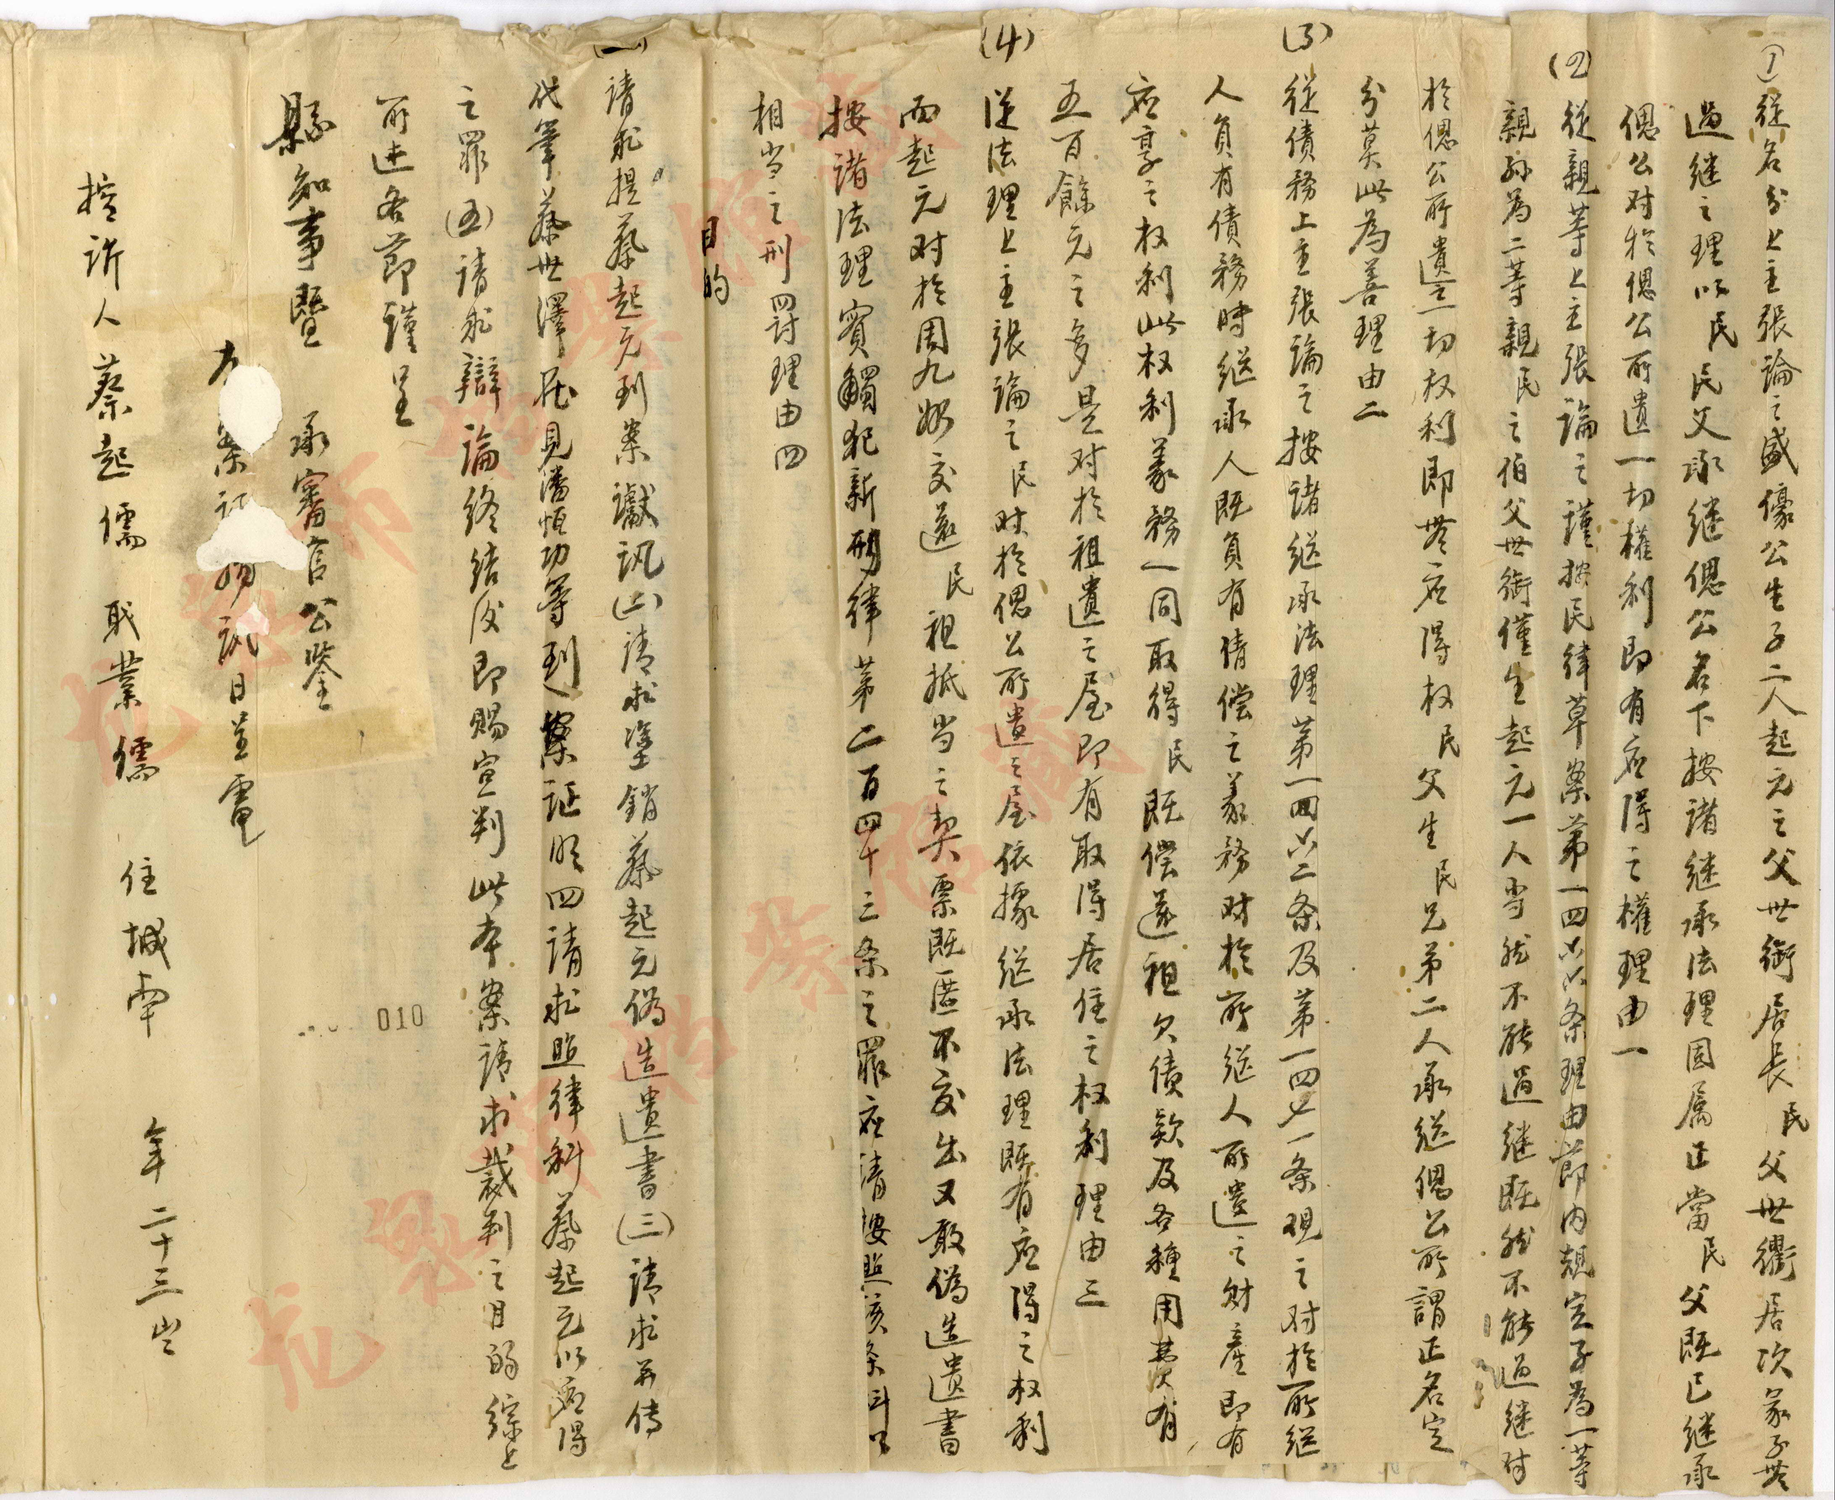 (1)從名分上主張論之盛儫公生子二人起元之父世衘居長民父世衢居次蒙子無
過继之理以民民父承继偲公名下按诸继承法理固属正當民父既已继承
偲公对於偲公所遺一切權利即有应得之權理由一
(2)從親等上主张論之謹按民律草案第一四六六条理由節内規定子為一等
親孙為二等親民之伯父世衘僅生起元一人当然不能過继既然不能過继对
於偲公所遺一切权利即無应得权民父生民兄弟二人承继偲公所謂正名定
分莫此為善理由二
(3)從债務上主張論之按诸继承法理第一四六二条及第一四七一条观之对於所继
人負有债務時继承人既負有清偿之義務对於所继人所遺之财產即有
应享之权利此权利義務一同取得民既偿還祖欠债款及各種用費有
五百餘元之多是对於祖遺之屋即有取得居住之权利理由三
(4)從法理上主張論之民对於偲公所遺之屋依據继承法理既有应得之权利
而起元对於周九嫂交還民祖抵当之契票既匿不交出又敢偽造遺書
按诸法理實觸犯新刑律第二百四十三条之罪应请按照该条科以
相当之刑罰理由四
目的
(一)请求提蔡起元到案讞訊(二)请求塗銷蔡起元偽造遺書(三)请求并传
代筆蔡世澤在見潘恒功等到案証明四请求照律科蔡起元以应得
之罪(五)请求辯論終结後即賜宣判此本案请求裁判之目的綜上
所述各節謹呈
縣知事暨 承審官公鉴
案 訊日呈電
控訴人蔡起儒 职業儒 住城南 年二十三岁
010